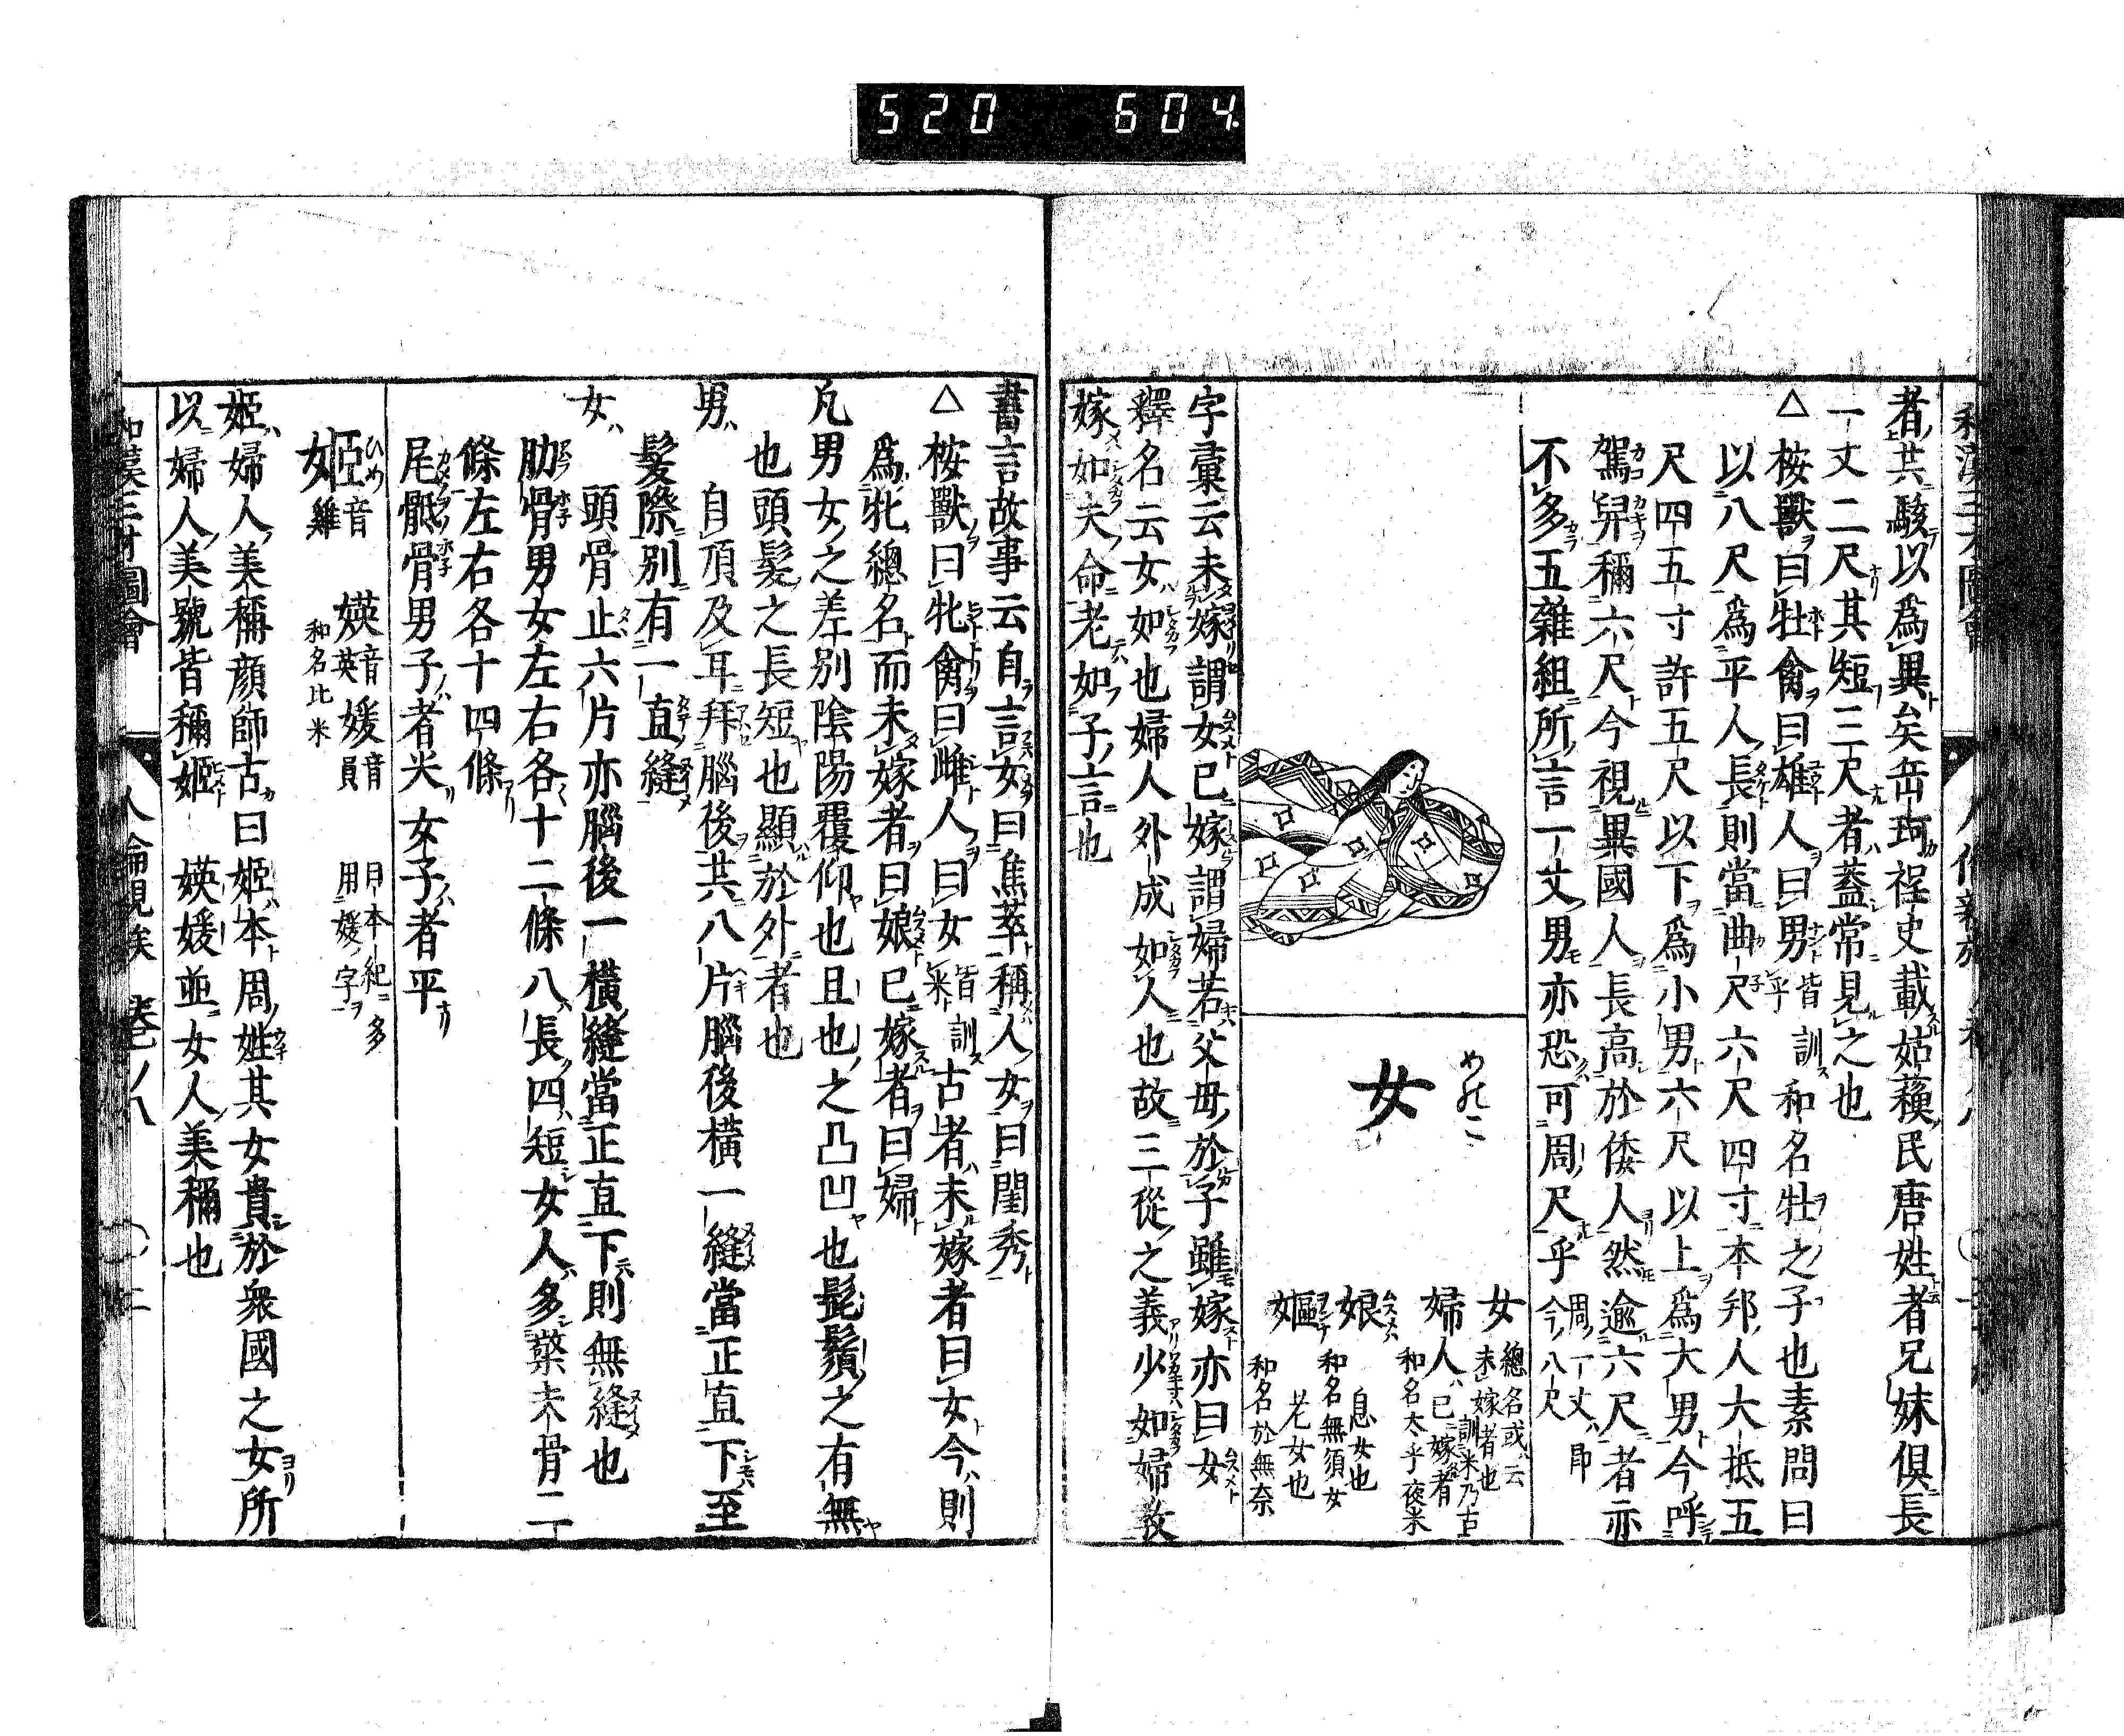 520 604
者共駭以為異矣岳珂桯史載姑蘓民唐姓者兄妹俱長
一丈二尺其短三尺者葢常見之也
△桉獸曰牡禽曰雄人曰男皆訓乎和名牡之子也素問曰
以八尺爲平人長則當曲尺六尺四寸本邦人大抵五
尺四五寸許五尺以下爲小男六尺以上爲大男今呼
駕舁稱六尺今視異國人長高於倭人然逾六尺者亦
不多五雜組所言一丈男亦恐可周尺乎周一丈即今八尺
めのこ
女
女總名或云未嫁者也訓米乃古
婦人已嫁者和名太乎夜米
娘息女也和名無須女
嫗老女也和名於無奈
字彙云未嫁謂女已嫁謂婦若父母於子雖嫁亦曰女
釋名云女如也婦人外成如人也故三從之義少如婦教
嫁如夫命老如子言也
書言故事云自言女曰焦萃稱人女曰閨秀
△桉獸曰牝禽曰雌人曰女皆訓米古者未嫁者曰女今則
爲牝總名而未嫁者曰娘已嫁者曰婦
凡男女之差別陰陽覆仰也且也之凸凹也髭鬚之有無
也頭髮之長短也顯於外者也
男自頂及耳拜腦後共八片腦後橫一縫當正直下至
髮際別有一直縫
女頭骨止六片亦腦後一橫縫當正直下則無縫也
肋骨男女左右各十二條八長四短女人多檠夫骨二
條左右各十四條
尾骶骨男子者尖女子者平
ひめ
姬音雞
媖音英媛音員
和名比米
日本紀多用媛字
姬婦人美稱顔師古曰姬本周姓其女貴於衆國之女所
以婦人美號皆稱姬媖媛並女人美稱也
和漢三才圖會
人倫親族
卷ノ八